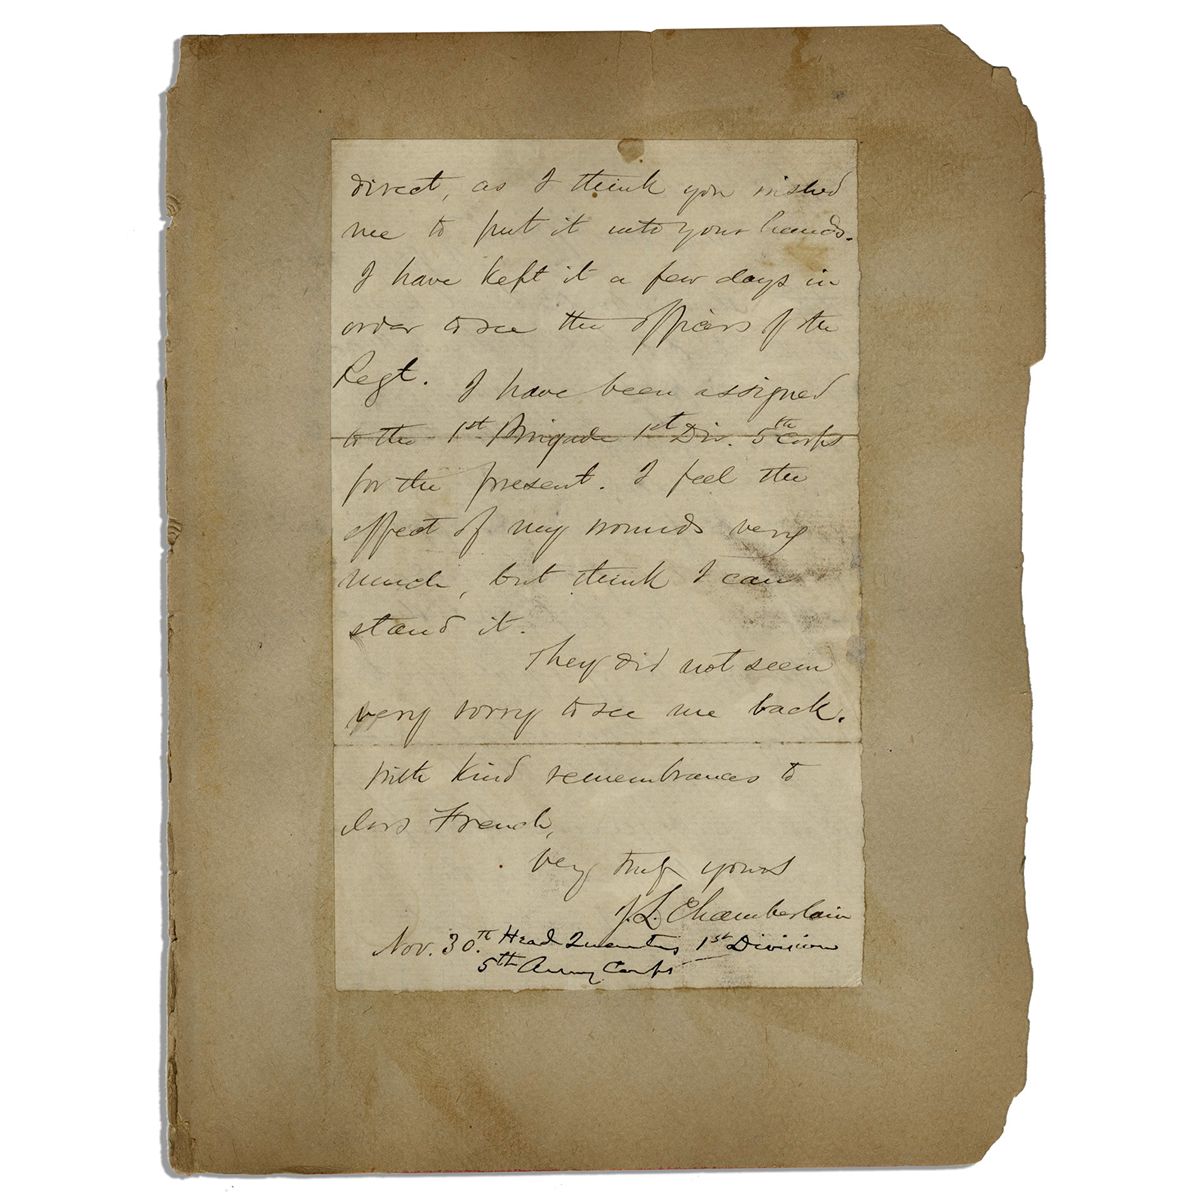 direct, as I think you wished
me to put it into your hands.
I have kept it a few days in
order to see the officers of the
Regt. I have been assigned
to the 1st. Brigade 1st Div. 5th Corps
for the present. I feel the
effect of my wounds very
much, but think I can
stand it.
They did not seem
very sorry to see me back.
With kind remembrances to
Mrs French,
very truly yours
J. L. Chamberlain
Nov. 30.th Head Quarters 1st Division
5th Army Corps